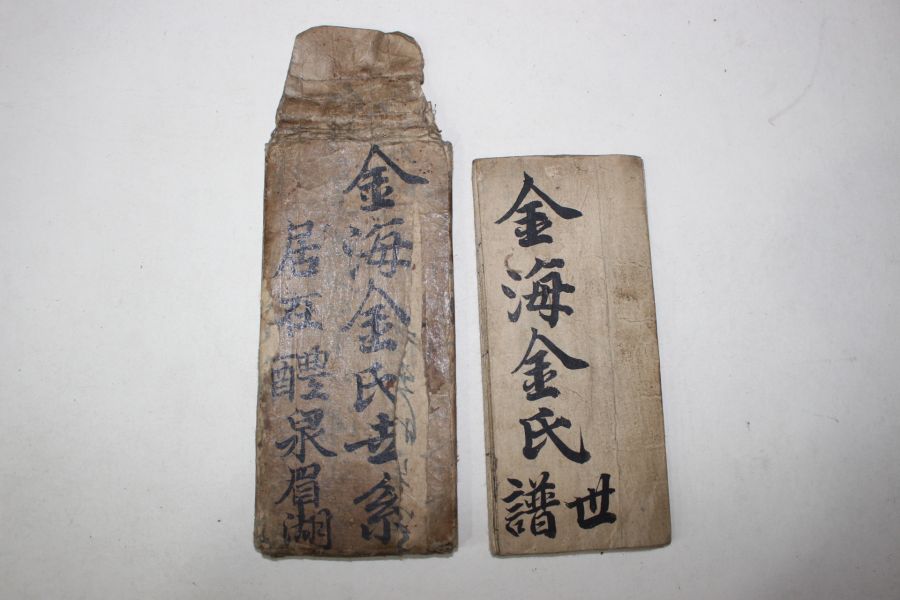 金海金氏世系
居在醴泉眉湖
金海金氏
世譜